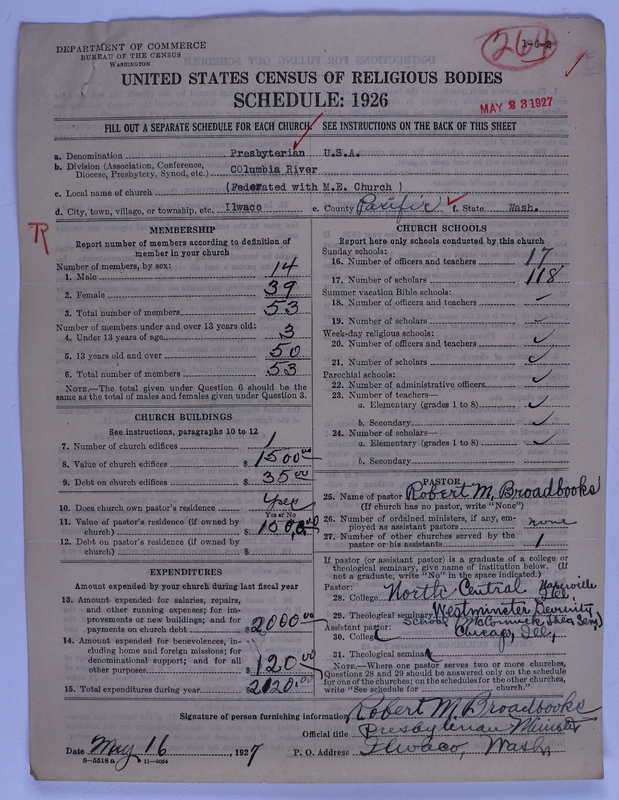 DEPARTMENT OF COMMERCE
BUREAU OF THE CENSUS
WASHINGTON
264
1-8-2
UNITED STATES CENSUS OF RELIGIOUS BODIES
SCHEDULE: 1926
MAY 23 1927
FILL OUT A SEPARATE SCHEDULE FOR EACH CHURCH. SEE INSTRUCTIONS ON THE BACK OF THIS SHEET
a. Denomination Presbyterian U.S.A.
b. Division (Association, Conference, Diocese, Presbytery, Synod, etc.) COlumbia River
c. Local name of church (Federated with M.E. Church )
d. City, town, village, or township, etc. Ilwaco e. County Pacific f. State Wash.
MEMBERSHIP
Report number of members according to definition of
member in your church
Number of members, by sex:
1. Male 14
2. Female 39
3. Total number of members 53
Number of members under and over 13 years old:
4. Under 13 years of age 3
5. 13 years old and over 50
6. Total number of members 53
NOTE.—The total given under Question 6 should be the
same as the total of males and females given under Question 3.
CHURCH BUILDINGS
See instructions, paragraphs 10 to 12
7. Number of church edifices 1
8. Value of church edifices $ 1500.00
9. Debt on church edifices $ 35.00
10. Does church own pastor's residence yes
Yes or No
11. Value of pastor's residence (if owned by
church) $ 1500.00
12. Debt on pastor's residence (if owned by
church) $
EXPENDITURES
Amount expended by your church during last fiscal year
13. Amount expended for salaries, repairs,
and other running expenses; for im-
provements or new buildings; and for
payments on church debt $ 2000.00
14. Amount expended for benevolences, in-
cluding home and foreign missions; for
denominational support; and for all
other purposes $ 120.00
15. Total expenditures during year $ 2120.00
CHURCH SCHOOLS
Report here only schools conducted by this church
Sunday schools:
16. Number of officers and teachers 17
17. Number of scholars 118
Summer vacation Bible schools:
18. Number of officers and teachers
19. Number of scholars
Week-day religious schools:
20. Number of officers and teachers
21. Number of scholars
Parochial schools:
22. Number of administrative officers
23. Number of teachers—
a. Elementary (grades 1 to 8)
b. Secondary
24. Number of scholars—
a. Elementary (grades 1 to 8)
b. Secondary
PASTOR
25. Name of pastor Robert M. Broadbooks
(If church has no pastor, write "None")
26. Number of ordained ministers, if any, em-
ployed as assistant pastors none
27. Number of other churches served by the
pastor or his assistants 1
If pastor (or assistant pastor) is a graduate of a college or
theological seminary, give name of institution below. (If
not a graduate, write "No" in the space indicated.)
Pastor:
28. College North Central Naperville Ill.
29. Theological seminary Westminster Devinity
School (McCormick Theo. Sem.)
Assistant pastor:
30. College Chicago, Ill,
31. Theological seminary
NOTE.—Where one pastor serves two or more churches,
Questions 28 and 29 should be answered only on the schedule
for one of the churches; on the schedules for the other churches,
write "See schedule for church."
Signature of person furnishing information Robert M. Broadbooks
Official title Presbyterian Minister
Date May 16, 1927 P. O. Address Ilwaco, Wash.
8—5318 a 11—9054